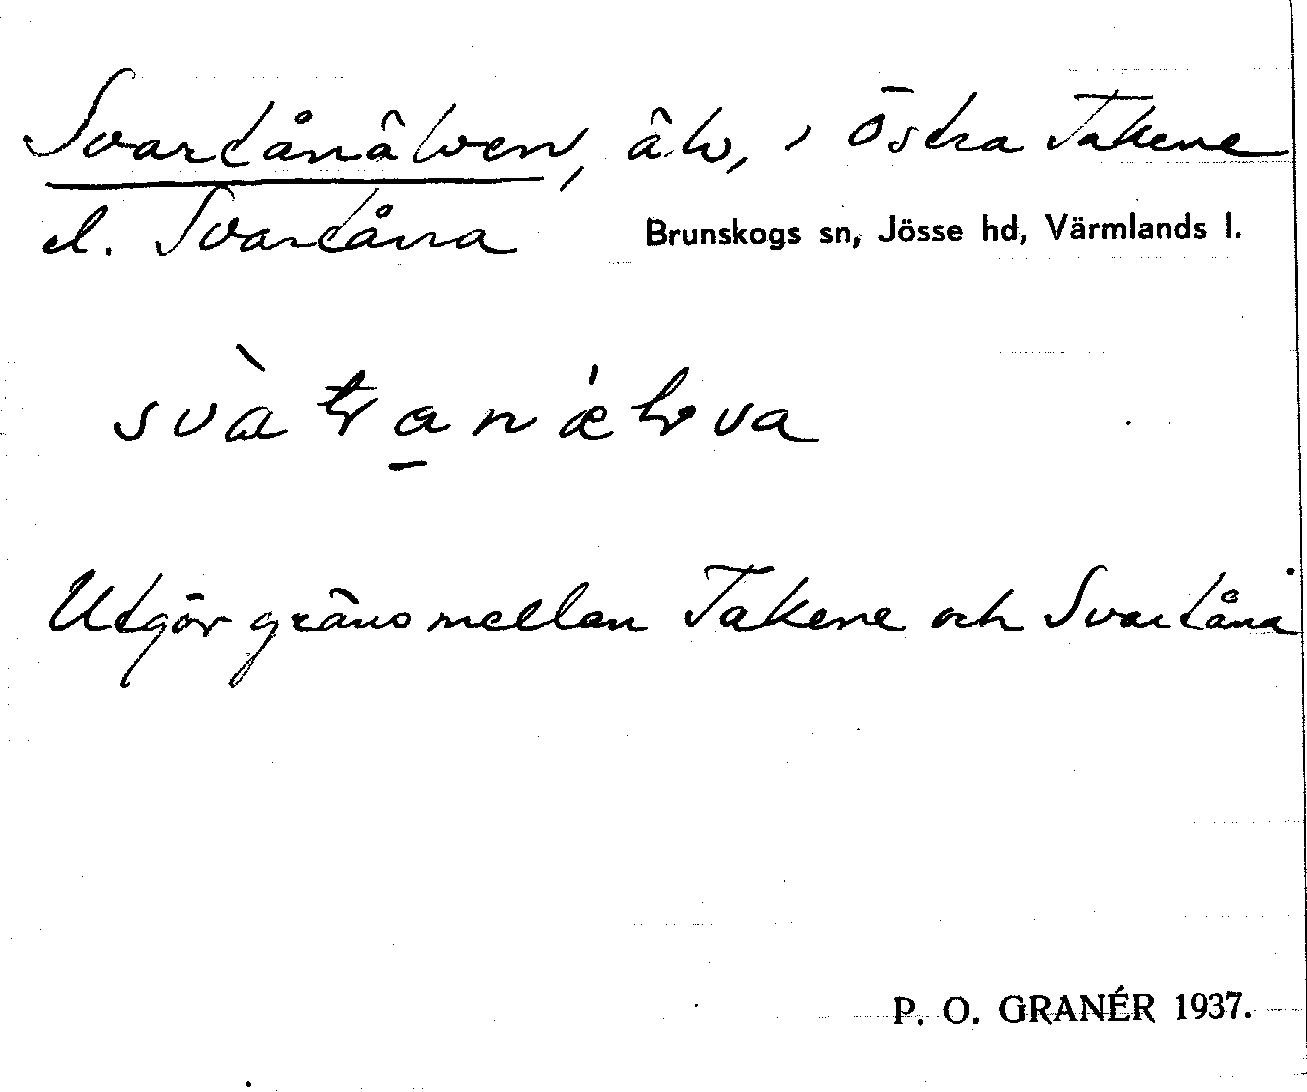 Svartånälven, älv, i Östra Takene
el. Svartåna Brunskogs sn, Jösse hd, Värmlands l.
Utgör gräns mellan Takene och Svartåna
P. O. GRANÉR 1937.